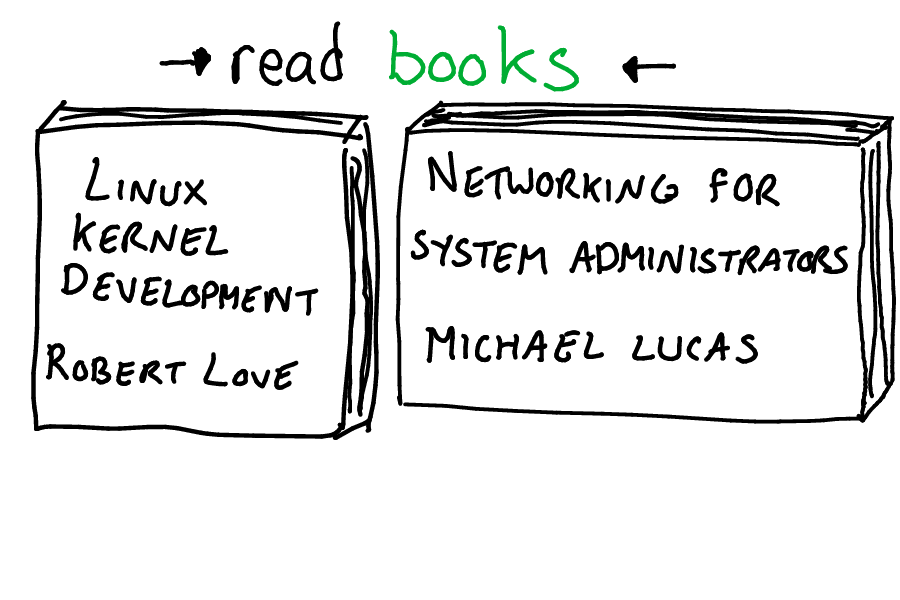 → read books ←
LINUX
KERNEL
DEVELOPMENT
ROBERT LOVE
NETWORKING FOR
SYSTEM ADMINISTRATORS
MICHAEL LUCAS